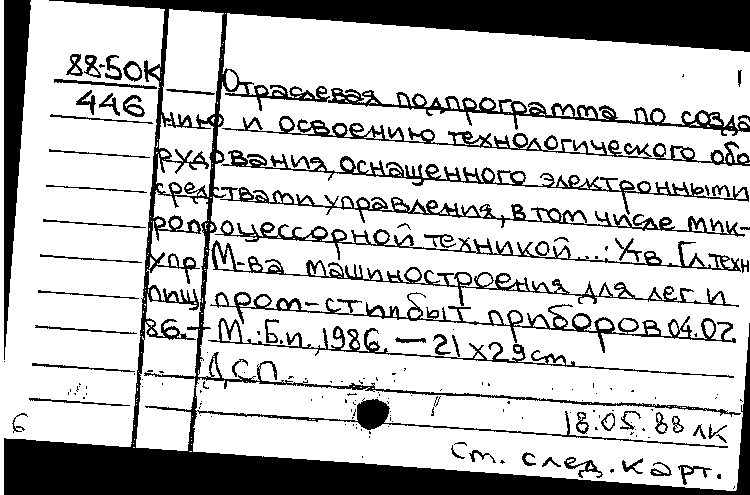 88-50К
446
Отраслевая подпрограмма по созда
нию и освоению технологического обо
рудования, оснащенного электронными
средствами управления, в том числе мик-
ропроцессорной техникой...: Утв. Гл. техн
упр М-ва машиностроения для лег. и
пищ. пром-сти и быт. приборов 04.02.
86. - М.: Б.и., 1986. — 21 x 29 cm.
ДСП
18.05.88 лк
6
Ст. след. карт.